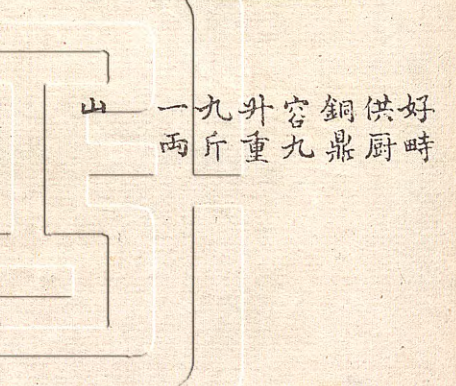 好畤
供厨
銅鼎
容九
升重
九斤
一両
山